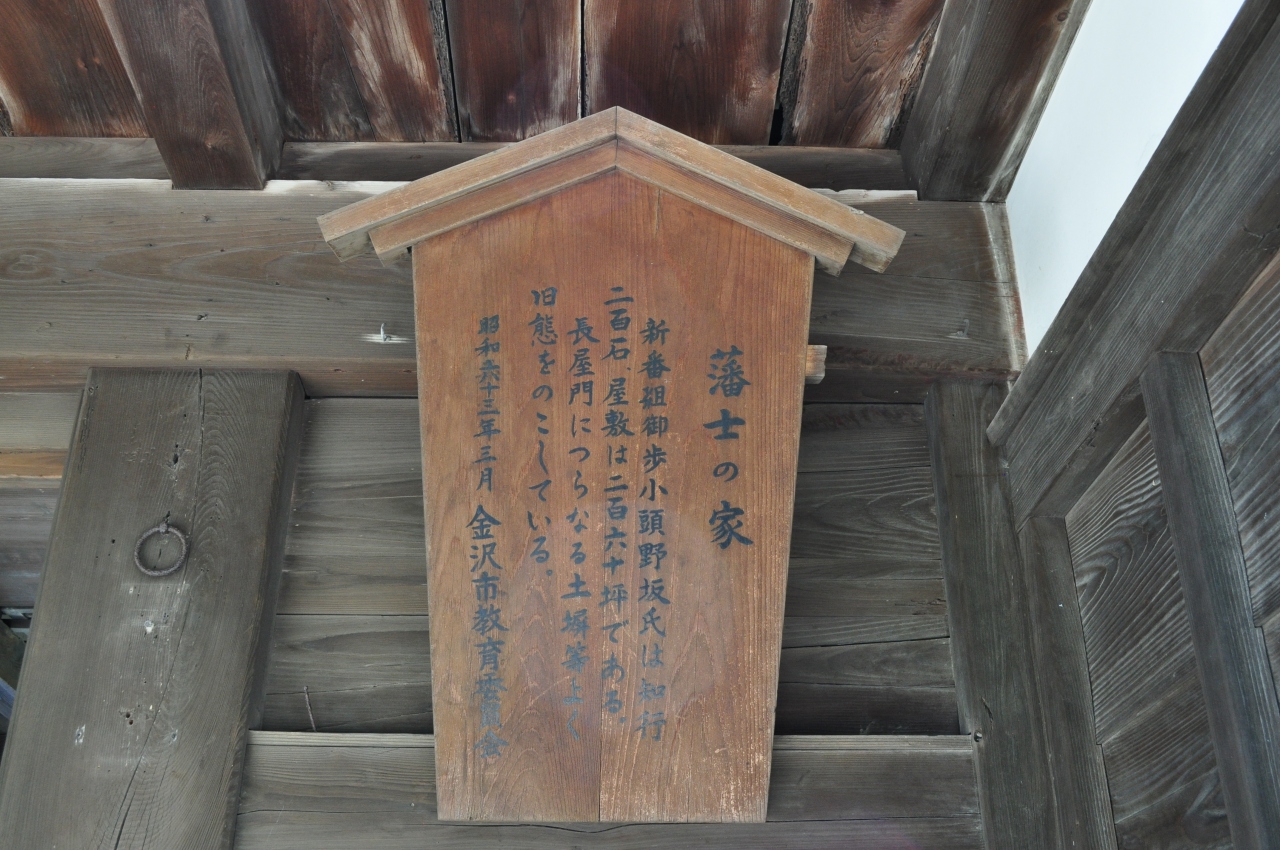 藩士の家
新番組御歩小頭野坂氏は知行
二百石、屋敷は二百六十坪である。
長屋門につらなる土塀等よく
旧態をのこしている。
昭和六十三年三月 金沢市教育委員会